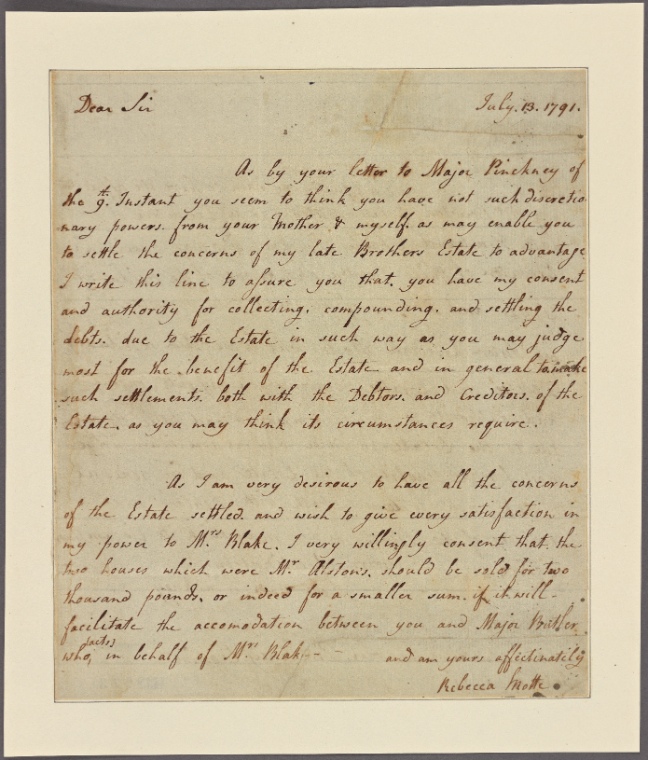 Dear Sir July. 13. 1791.
As by your letter to Major Pinckney of
the 9th. Instant you seem to think you have not such discretio
nary powers. from your Mother & myself. as may enable you
to settle the concerns of my late Brothers Estate to advantage
I write this line to assure you that. you have my consent
and authority for collecting. compounding. and settling the
debts. due to the Estate in such way as you may judge
most for the benefit of the Estate and in general to make
such settlements. both with the Debtors. and Creditors. of the
Estate. as you may think its circumstances require.
As I am very desirous to have all the concerns
of the Estate settled. and wish to give every satisfaction in
my power to Mrs. Blake. I very willingly consent that. the
two houses which were Mr. Alston's. should be sold for two
thousand pounds. or indeed for a smaller sum. if it will-
facilitate the accomodation between you and Major Butler
who, (acts) in behalf of Mrs. Blake - - and am yours affectinatily
Rebecca Motte.